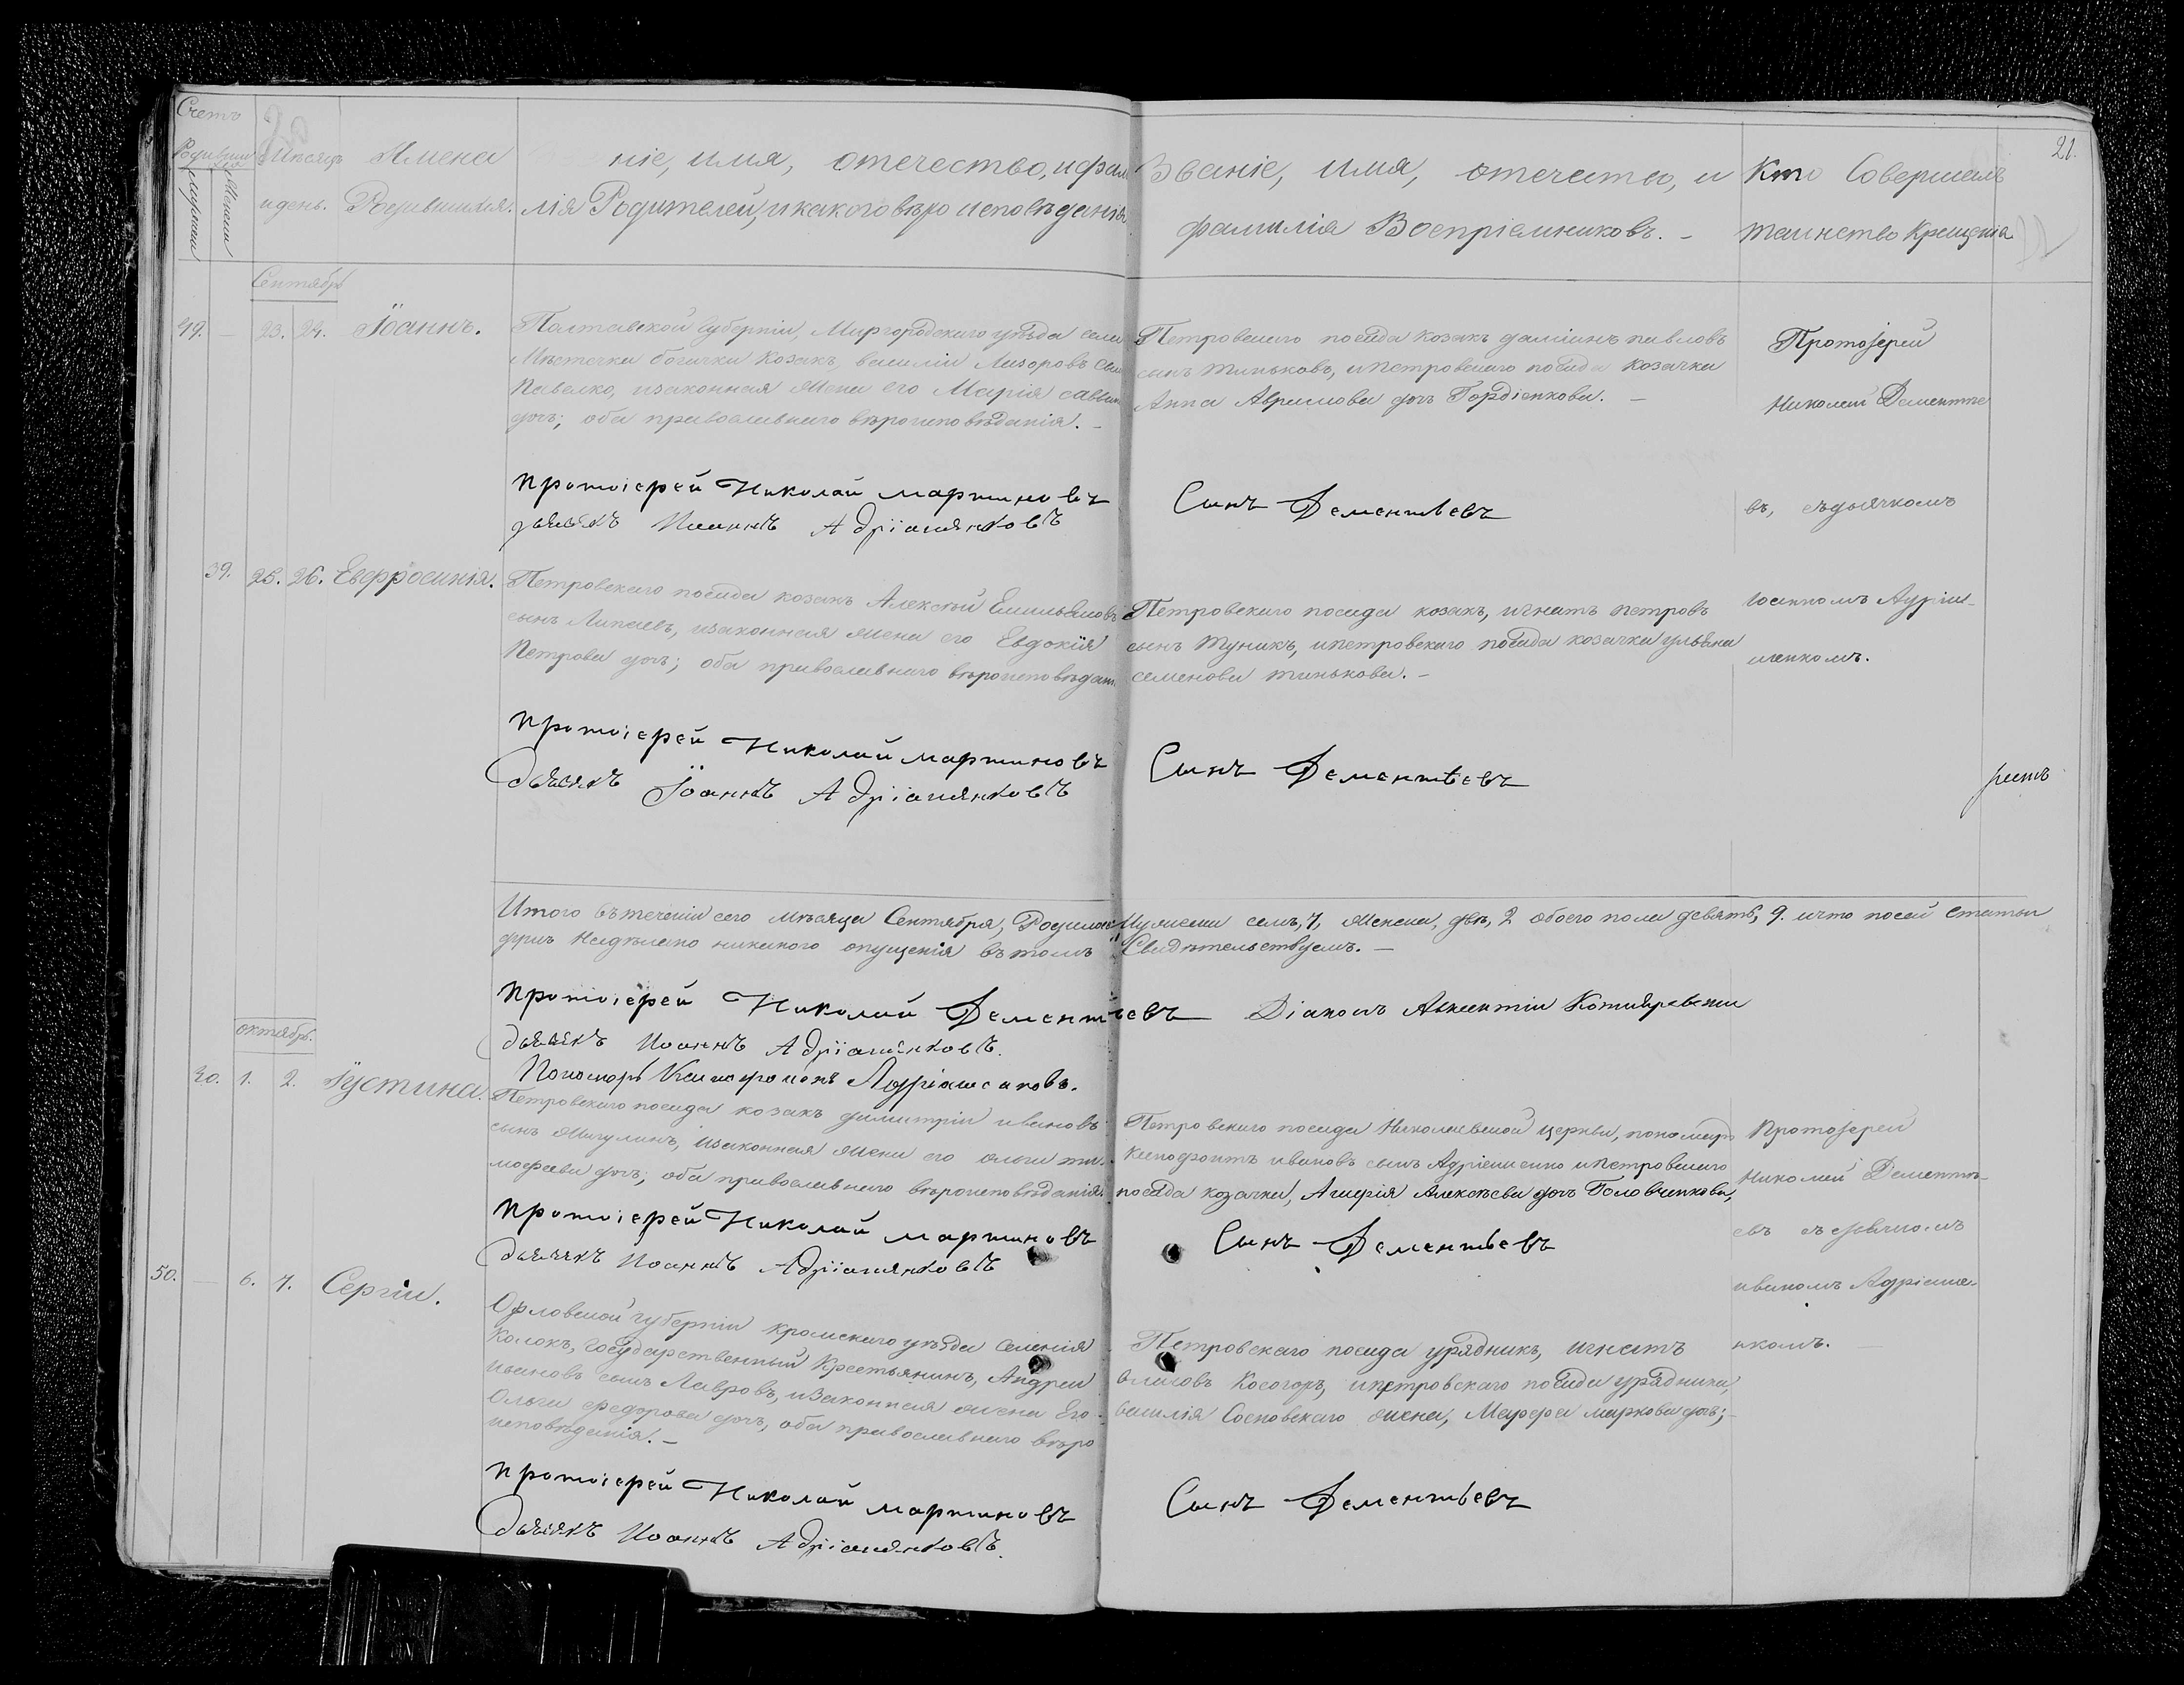 Счетъ
Родивши
хся
Мѣсяцъ
Имена
ніе, имя, отечество, и фами
Званіе, имя, отечество, и
Кто Совершалъ
21.
мужски
Женски
и день.
Родившихся.
лія Родителей, и какого вѣро исповѣданія
фамилія Воспріемниковъ. –
таинство Крещенія
Сентябрь
49. – 23. 24. Іоаннъ.
Полтавской Губерніи, Миргородскаго уѣзда
Мѣстечка богачки Козакъ, василій сынъ
Павелко, и законная Жена его Марія
дочь; оба православнаго вѣроисповѣданія. –
Петровскаго посада козакъ даміанъ павловъ
сынъ тиньковъ, и петровскаго посада козачка
Анна Аврамова дочь Гордіенкова. –
Протоіерей
Николай Дементье
въ, съ дьячкомъ
Протоіерей Николай мартиновъ
Сынъ Дементьевъ
дьячекъ Иоаннъ Адріашенковъ
39. 25. 26. Евфросинія.
Петровскаго посада козакъ Алексѣй Емильяновъ
сынъ Липаевъ, и законная жена его Евдокія
Петрова дочь; оба православнаго вѣроисповѣдан.
Петровскаго посада козакъ, игнатъ петровъ
сынъ Туникъ, и петровскаго посада козачка ульяна
семенова тинькова. –
Іоанномъ Адріа-
шенкомъ.
Протоіерей Николай мартиновъ
Сынъ Дементьевъ
дьячекъ Іоаннъ Адріашенковъ
Итого въ теченіи сего мѣсяца Сентября, Родилось Мужеска семь, 7, Женска, двѣ, 2 обоего пола девять, 9. и что по сей статьи
при недѣлано никакого опущенія въ томъ Свидѣтельствуемъ. –
Протоіерей Николай Дементьевъ Діаконъ Авксентій Котляревскій
дьячекъ Иоаннъ Адріашенковъ.
Пономарь Ксенофонтъ Адріашенковъ.
октябрь.
40. 1. 2. Іустина.
Петровскаго посада козакъ димитрій ивановъ
сынъ Мигулинъ, и законная Жена его ольга ти-
мофеева дочь; оба православнаго вѣроисповѣданія.
Петровскаго посада Николаевской церкви, пономарь
Ксенофонтъ ивановъ сынъ Адріашенко и петровскаго
посада козачка, Агафія Алексѣева дочь Головченкова,
Протоіерей
Николай Дементь-
евъ съ дьячкомъ
иваномъ Адріаше-
нкомъ.
Протоіерей Николай мартиновъ
Сынъ Дементьевъ
дьячекъ Иоаннъ Адріашенковъ
50. – 6. 7. Сергій.
Орловской губерніи кромскаго уѣзда Селенія
Колокъ, Государственный Крестьянинъ, Андрей
Ивановъ сынъ Лавровъ, и Законная жена Его
Ольга федорова дочь, оба православнаго вѣро
исповѣданія. –
Петровскаго посада урядникъ, игнатъ
власовъ Косогоръ, и петровскаго посада урядника,
василія Сосновскаго жена, Марфа маркова дочь; –
Протоіерей Николай мартиновъ
Сынъ Дементьевъ
дьячекъ Иоаннъ Адріашенковъ.